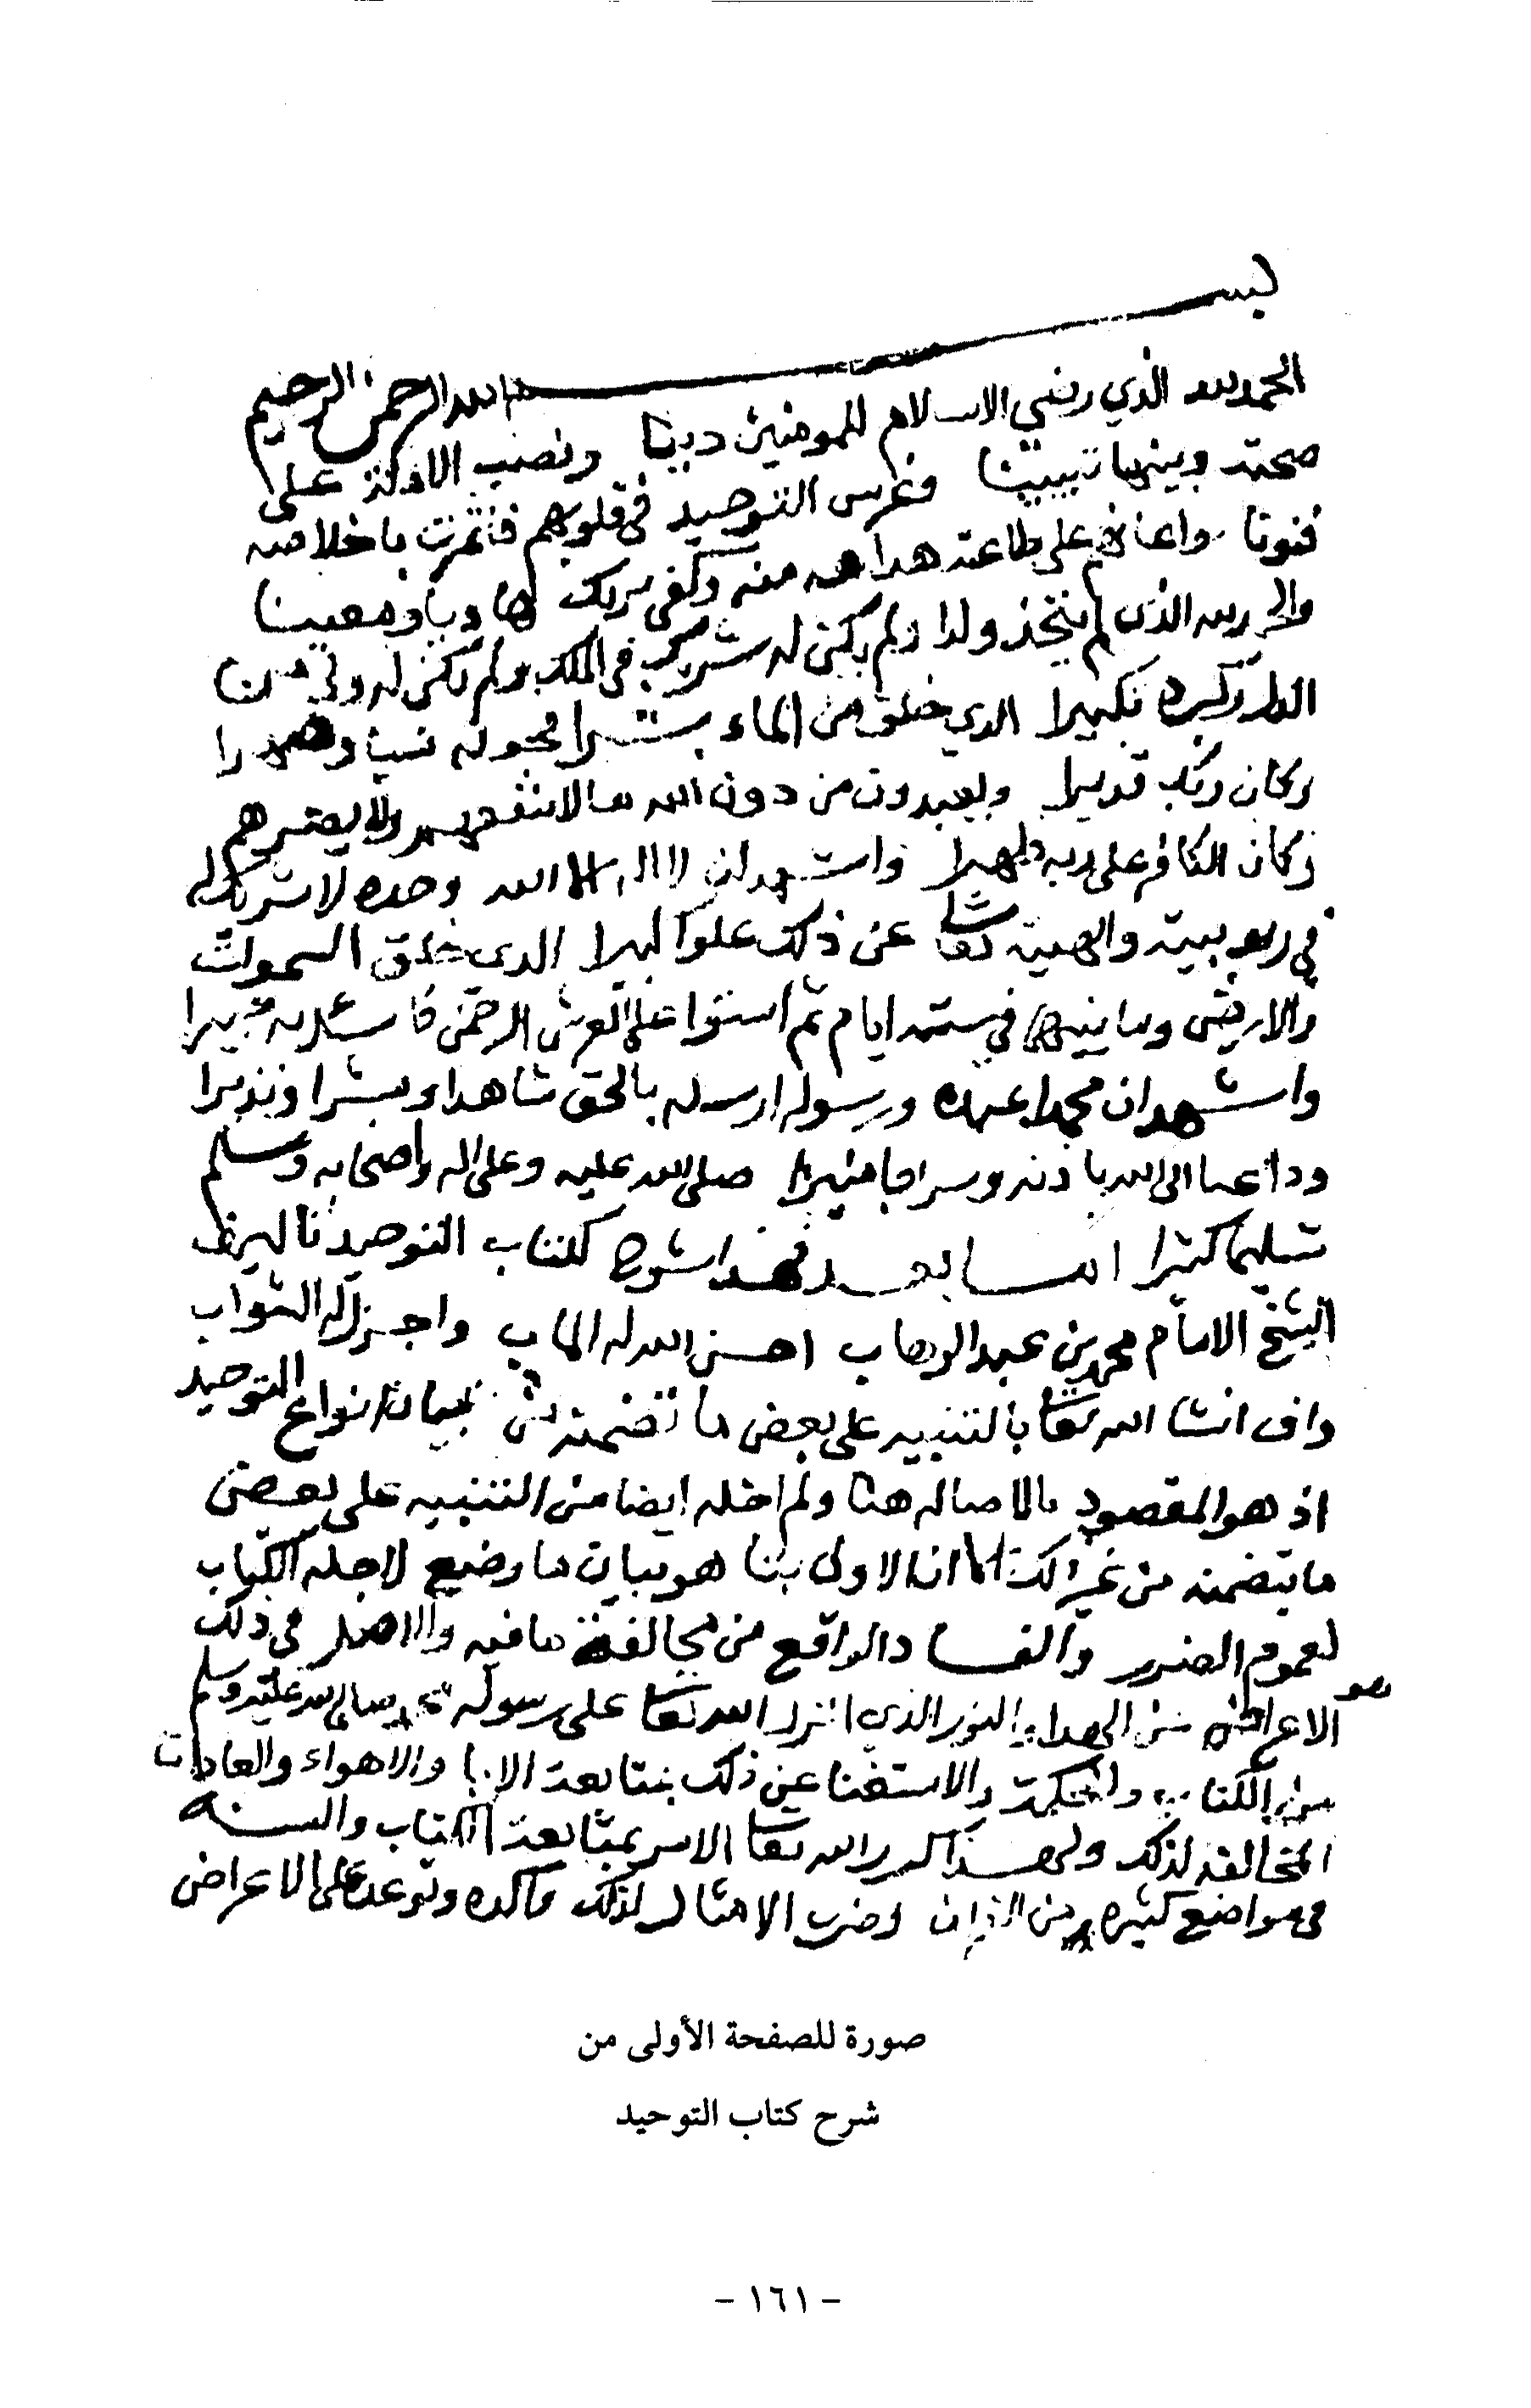 بسم الله الرحمن الرحيم
الحمد لله الذي رضي الاسلام للمومنين دينا ونصب الادلة على
صحته وبينها تبيينا وغرس التوحيد في قلوبهم فاثمرت باخلاصه
فنونا واعانهم على طاعته هداية منه وكفى بربك هاديا ومعينا
والحمد لله الذي لم يتخذ ولدا ولم يكن له شريك في الملك ولم يكن له ولي من
الذل وكبره تكبيرا الذي خلق من الماء بشرا فجعله نسبا وصهرا
وكان ربك قديرا ويعبدون من دون الله مالا ينفعهم ولا يضرهم
وكان الكافر على ربه ظهيرا واشهد ان لا اله الا الله وحده لا شريك له
في ربوبيته والهيته تعالى عن ذلك علوا كبيرا الذي خلق السموات
والارض وما بينهما في ستة ايام ثم استوا على العرش الرحمن فاسئل به خبيرا
واشهد ان محمدا عبده ورسوله ارسله بالحق شاهدا ومبشرا ونذيرا
وداعيا الى الله باذنه وسراجا منيرا صلى الله عليه وعلى اله واصحابه وسلم
تسليما كثيرا اما بعد فهذا شرح لكتاب التوحيد تاليف
الشيخ الامام محمد بن عبد الوهاب احسن الله له الماب واجزل له الثواب
واف انشا الله تعا بالتنبيه على بعض ما تضمنه من بيان انواع التوحيد
اذ هو المقصود بالاصاله هنا ولم اخله ايضا من التنبيه على بعض
ما يتضمنه من غير ذلك الا ان الاولى بنا هو بيان ما وضع لاجله الكتاب
لعموم الضرر والفساد الواقع من مخالفة ما فيه والاصل في ذلك
هو الاعراض عن الهدا والنور الذي انزل الله تعا على رسوله محمد صلى الله عليه وسلم
من الكتاب والحكمة والاستغنا عن ذلك بمتابعة الابا والاهواء والعادات
المخالفه لذلك ولهذا كرر الله تعا الامر بمتابعة الكتاب والسنه
في مواضع كثيره من القران وضرب الامثال لذلك واكده وتوعد على الاعراض
صورة للصفحة الأولى من
شرح كتاب التوحيد
- ١٦١ -